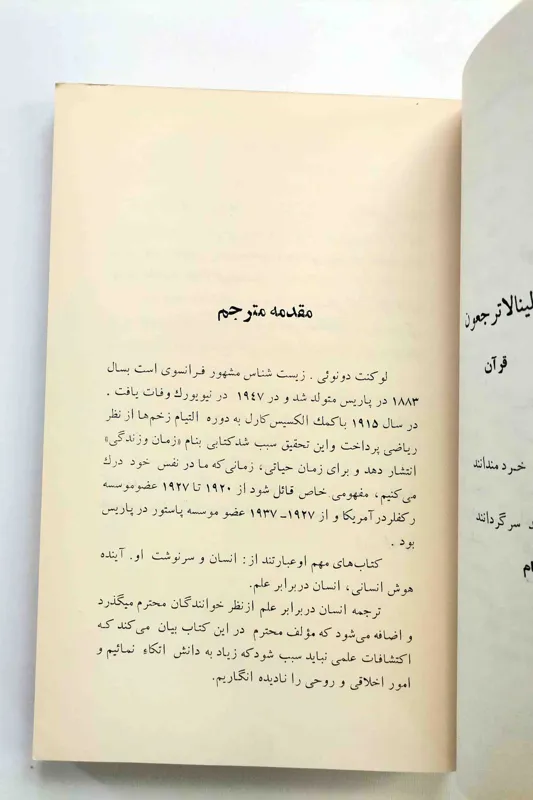 مقدمه مترجم
لوکنت دونوئی . زیست شناس مشهور فرانسوی است بسال
۱۸۸۳ در پاریس متولد شد و در ۱۹۴۷ در نیویورك وفات یافت .
در سال ۱۹۱۵ باکمك الکسیس‌کارل به دوره التیام زخم‌ها از نظر
ریاضی پرداخت و این تحقیق سبب شدکتابی بنام «زمان وزندگی»
انتشار دهد و برای زمان حیاتی، زمانی‌که ما در نفس خود درك
می‌کنیم، مفهومی خاص قائل شود از ۱۹۲۰ تا ۱۹۲۷ عضوموسسه
رکفلردرآمریکا و از ۱۹۲۷-۱۹۳۷ عضو موسسه پاستور در پاریس
بود .
کتاب‌های مهم اوعبارتند از: انسان و سرنوشت او. آینده
هوش انسانی، انسان دربرابر علم.
ترجمه انسان دربرابر علم ازنظر خوانندگان محترم میگذرد
و اضافه می‌شود که مؤلف محترم در این کتاب بیان می‌کند که
اکتشافات علمی نباید سبب شودکه زیاد به دانش اتکاء نمائیم و
امور اخلاقی و روحی را نادیده انگاریم.
لینالاترجعون
قرآن
خردمندانند
سرگردانند